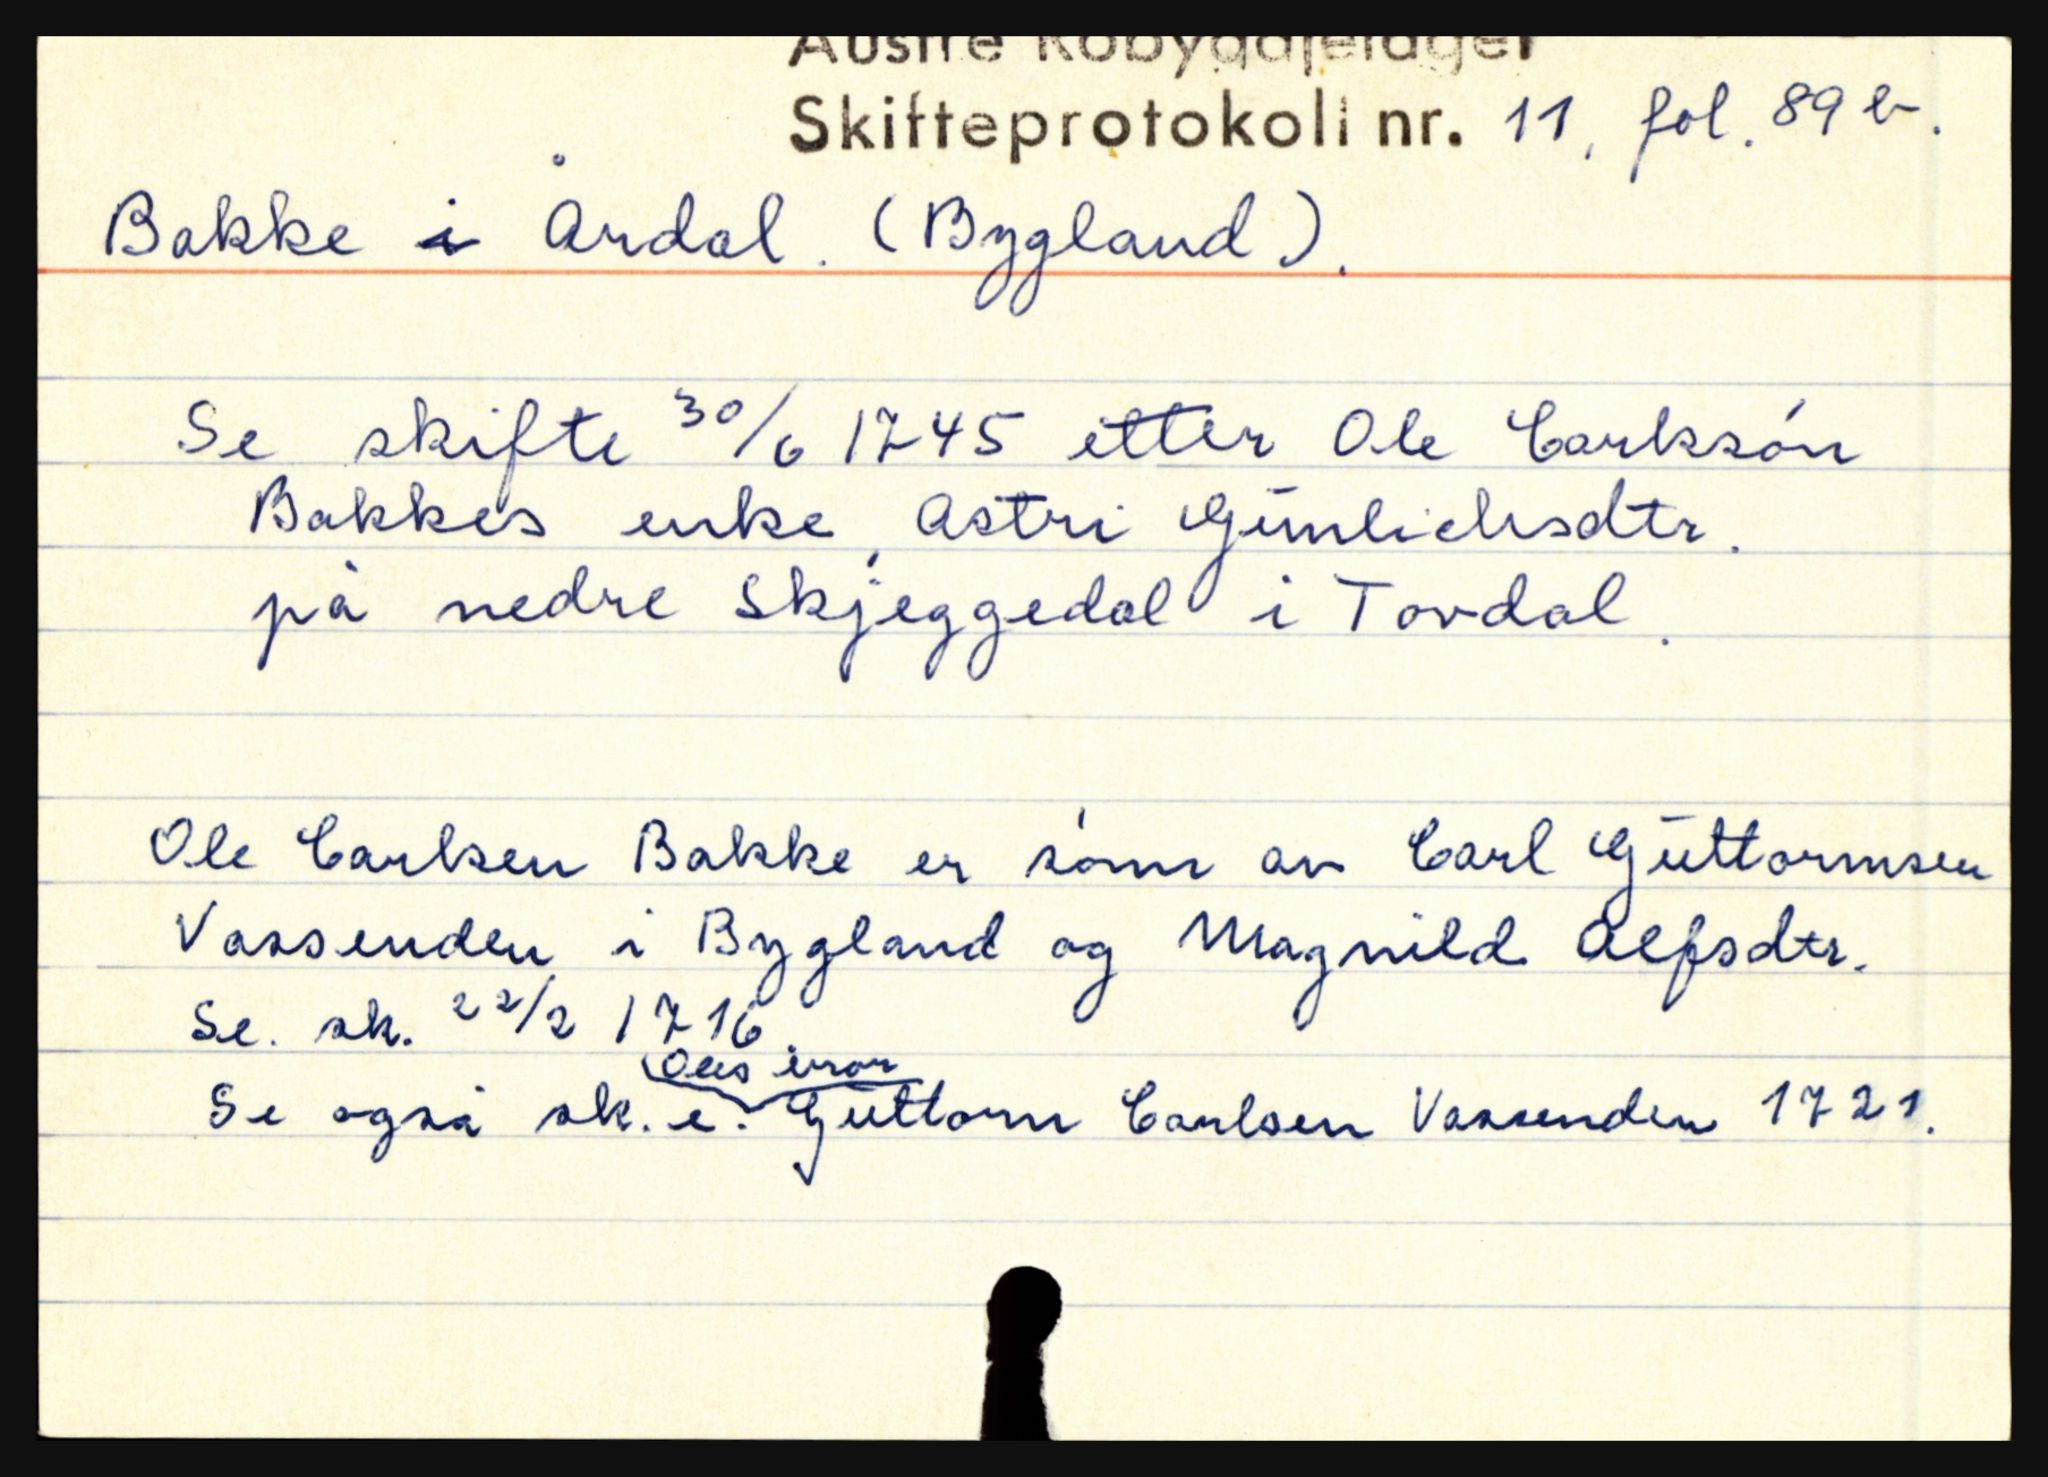 Austre Robyggjelaget
Skifteprotokoll nr. 11, fol. 89 b.
Bakke i Årdal. (Bygland).
Se skifte 30/6 1745 etter Ole Carlssón
Bakkes enke, Astri Gunlichsdtr.
på nedre Skjeggedal i Tovdal.
Ole Carlsen Bakke er sónn av Carl Guttormsen
Vassenden i Bygland og Magnild Alfsdtr.
Se. sk. 22/2 1716
Oles
Se også sk. e. Guttorm Carlsen Vassenden 1721.